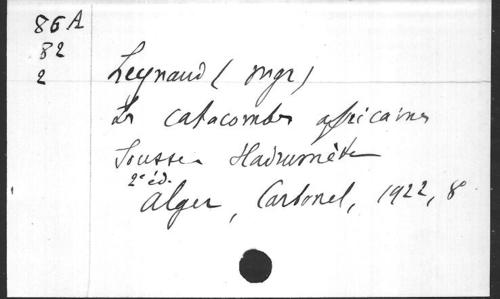 86A
82
2
Leynaud (Mgr)
Les catacombes africaines
Sousse - Hadrumète
2e éd.
Alger, Carbonel, 1922, 8°